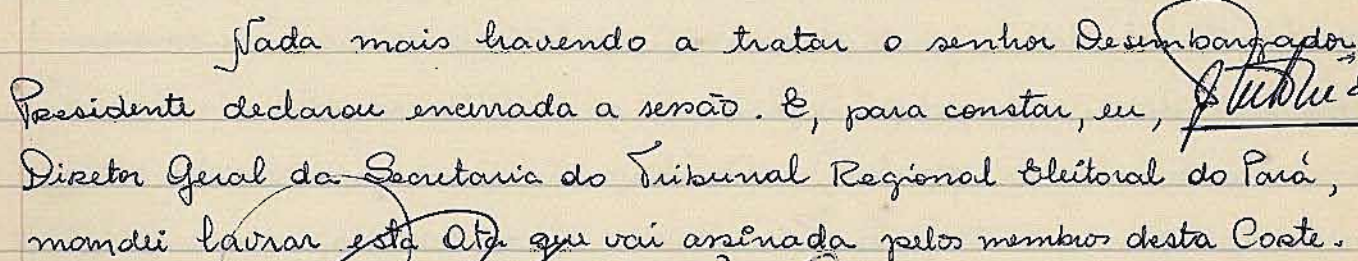 Nada mais havendo a tratar o senhor Desembargador
Presidente declarou encerrada a sessão. E, para constar, eu,
Diretor Geral da Secretaria do Tribunal Regional Eleitoral do Pará,
mandei lavrar esta Ata que vai assinada pelos membros desta Corte.